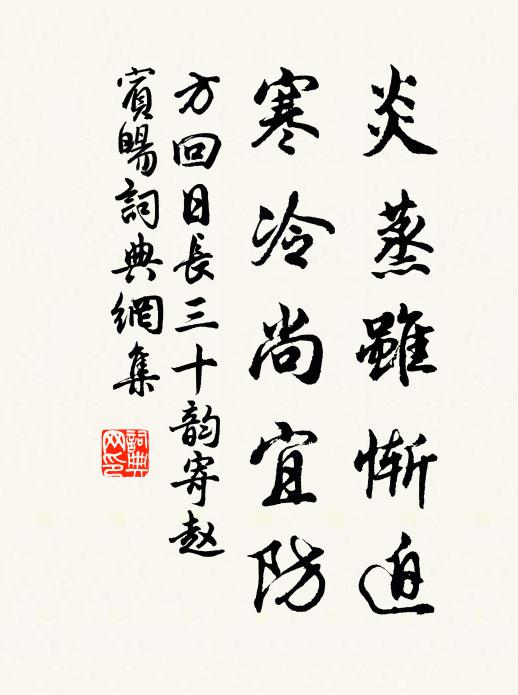 炎蒸雖惭迫
寒冷尚宜防
方回日長三十韵寄赵
賓暘詞典網集
詞典网印